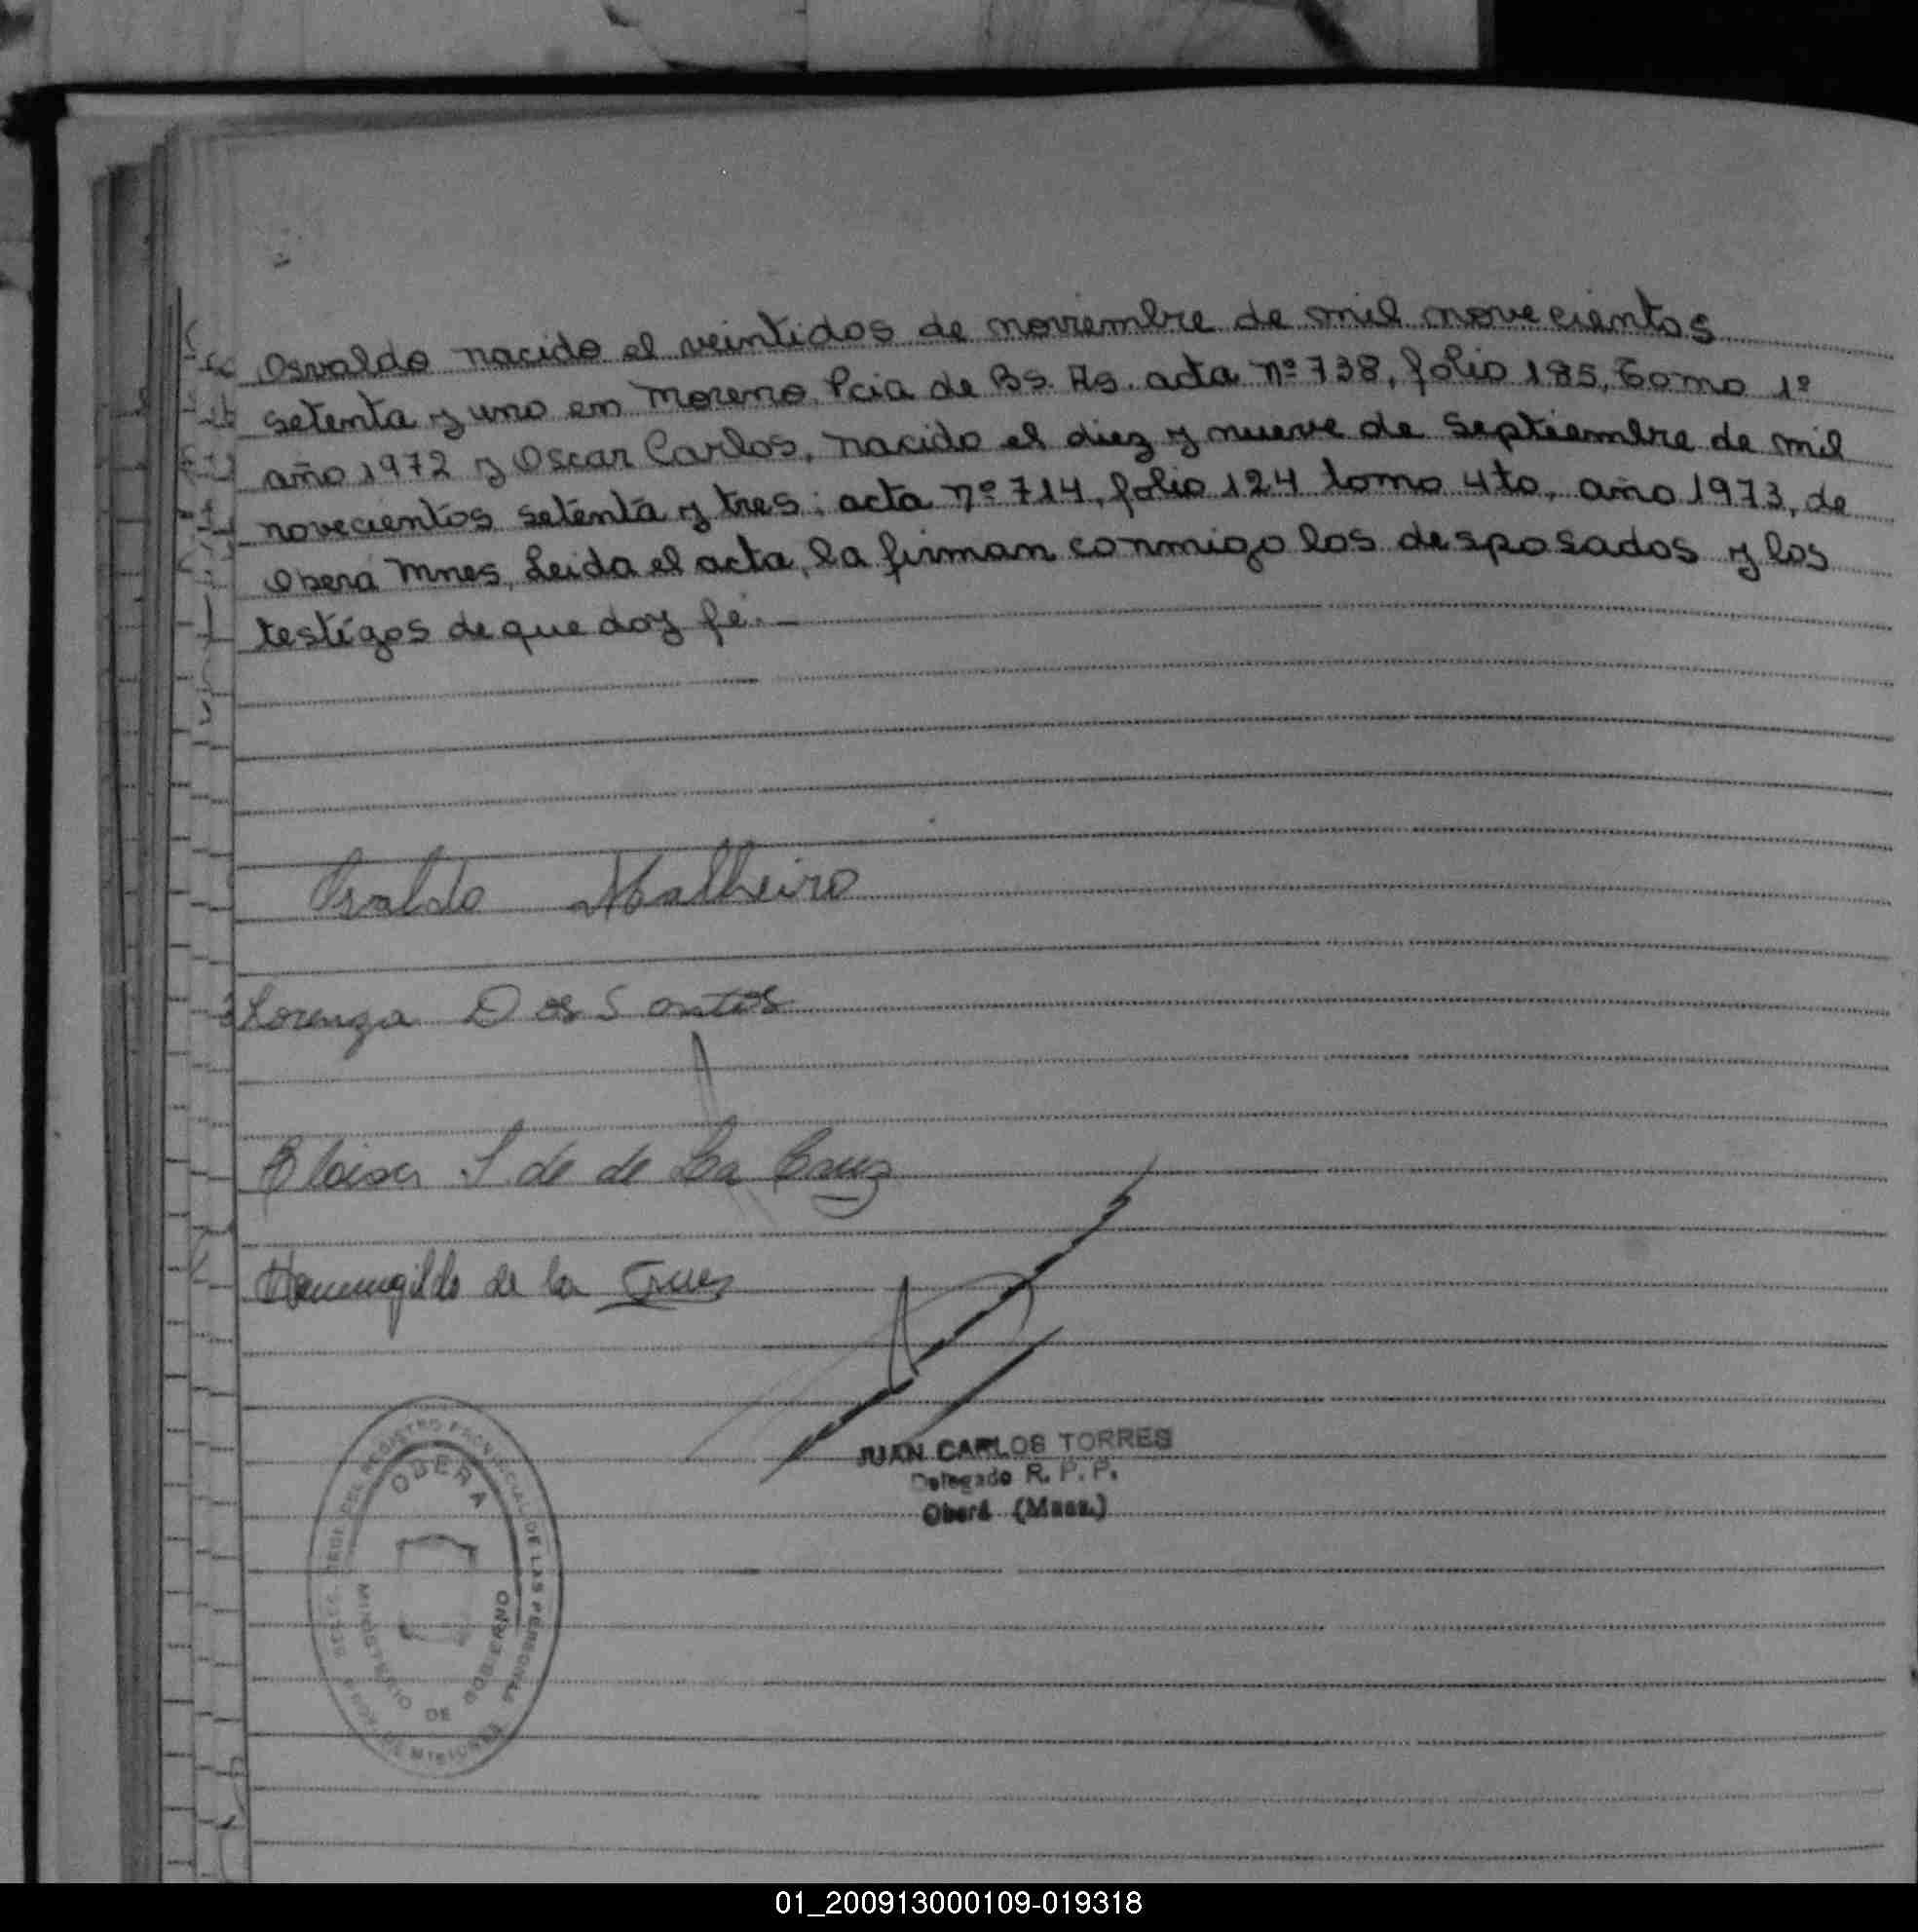 Osvaldo nacido el veintidos de noviembre de mil novecientos
setenta y uno en Moreno Pcia de Bs. As. acta nº 738, folio 185, Tomo 1º
año 1972 y Oscar Carlos, nacido el diez y nueve de septiembre de mil
novecientos setenta y tres; acta nº 714, folio 124 tomo 4to, año 1973, de
Oberá Mnes, Leida el acta, la firman conmigo los desposados y los
testigos de que doy fé.—
Osvaldo Malheiro
Lorenza Dos Santos
Eloisa S. de de La Cruz
Hermenegildo de la Cruz
JUAN CARLOS TORRES
Delegado R. P. P.
Oberá (Mnes.)
REGISTRO PROVINCIAL DE LAS PERSONAS
OBERA
MINISTERIO DE GOBIERNO
DE MISIONES
01_200913000109-019318